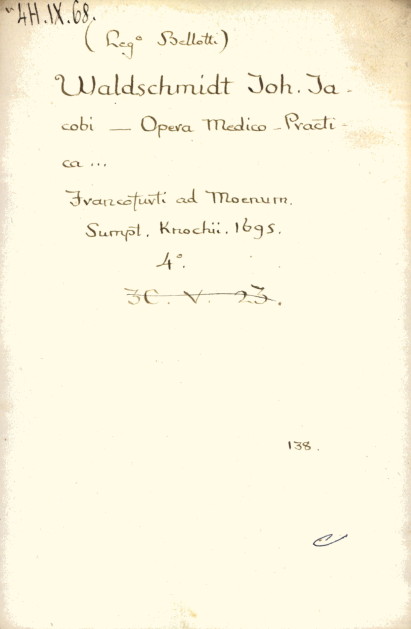 4H.IX.68.
(Leg.º Bellotti)
Waldschmidt Joh. Ja-
cobi — Opera Medico-Practi-
ca ...
Francofurti ad Moenum.
Sumpt. Knochii. 1695.
4°.
3C. V. 23.
138.